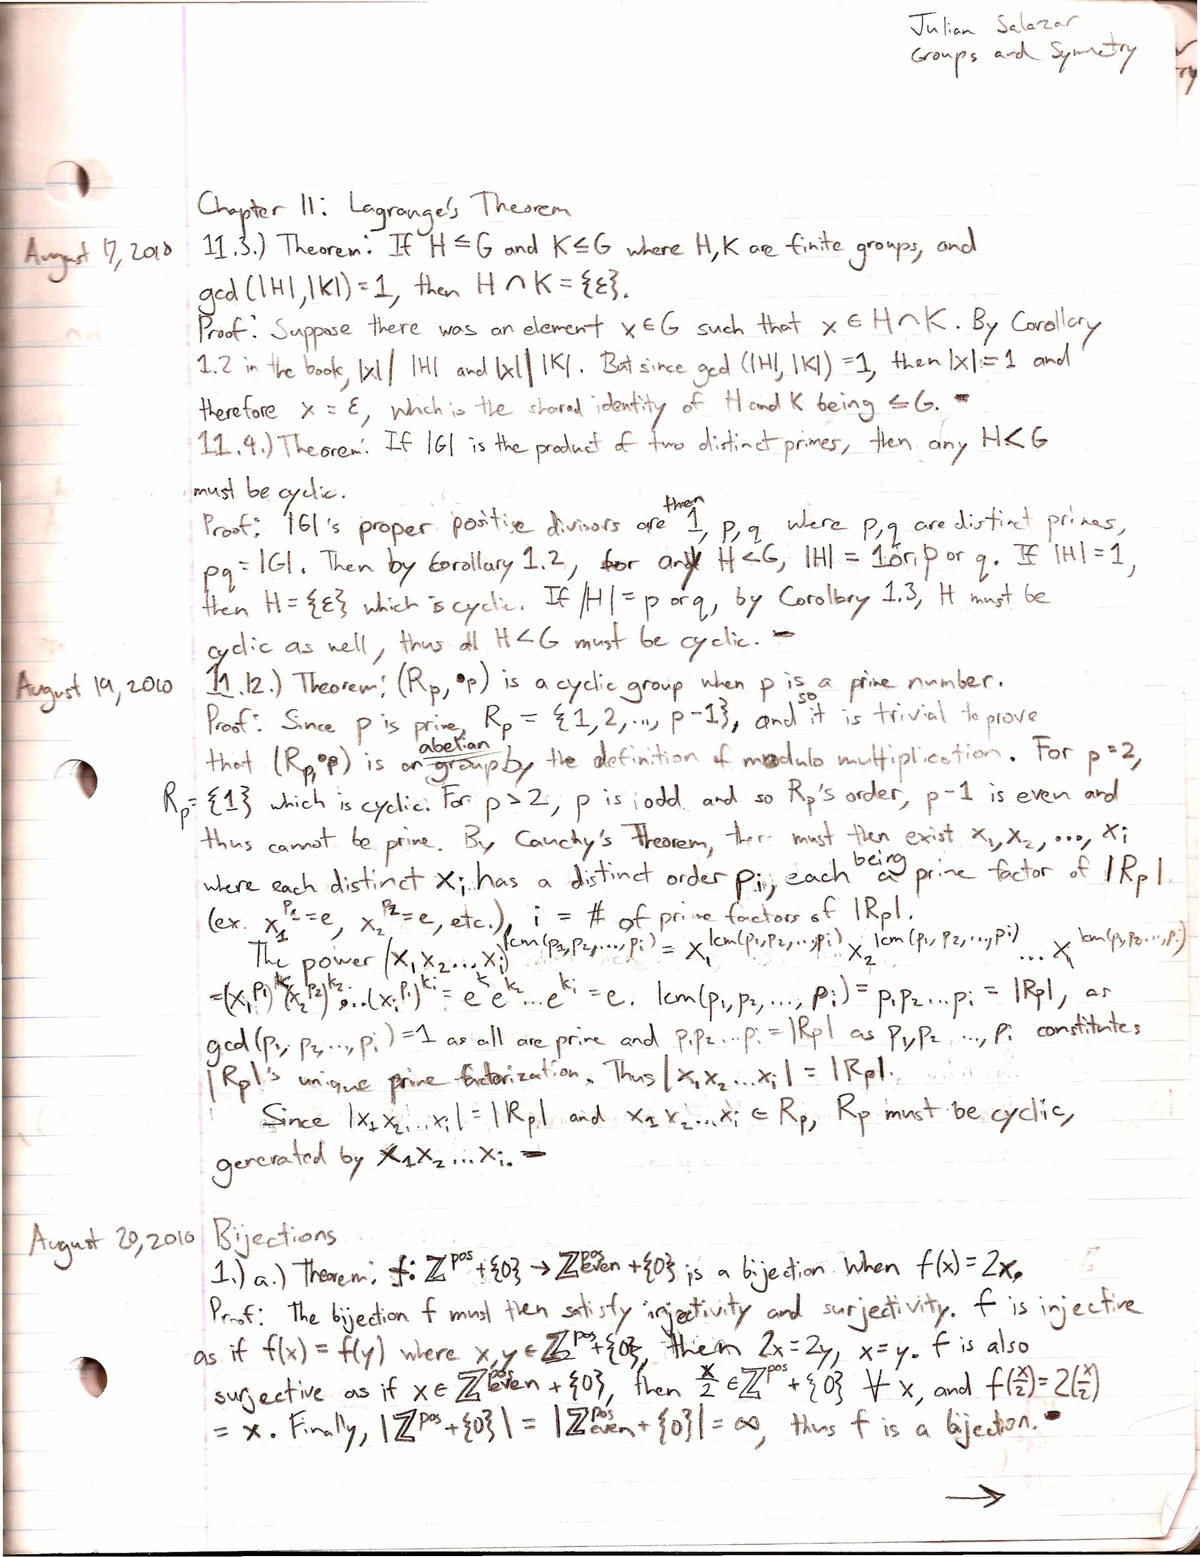 Julian Salazar
Groups and Symmetry
Chapter 11: Lagrange's Theorem
August 17, 2010 11.3.) Theorem: If H ≤ G and K ≤ G where H, K are finite groups, and
gcd (|H|, |K|) = 1, then H ∩ K = {ε}.
Proof: Suppose there was an element x ∈ G such that x ∈ H ∩ K. By Corollary
1.2 in the book, |x| / |H| and |x| | |K|. But since gcd (|H|, |K|) = 1, then |x| = 1 and
therefore x = ε, which is the shared identity of H and K being ≤ G.
11.4.) Theorem: If |G| is the product of two distinct primes, then any H < G
must be cyclic.
Proof: |G|'s proper positive divisors are then 1, p, q where p, q are distinct primes,
pq = |G|. Then by Corollary 1.2, for any H < G, |H| = 1 or p or q. If |H| = 1,
then H = {ε} which is cyclic. If |H| = p or q, by Corollary 1.3, H must be
cyclic as well, thus all H < G must be cyclic.
August 19, 2010 11.12.) Theorem: (Rp, •p) is a cyclic group when p is a prime number.
Proof: Since p is prime, Rp = {1, 2, ..., p-1}, and so it is trivial to prove
that (Rp, •p) is an abelian group by the definition of modulo multiplication. For p = 2,
Rp = {1} which is cyclic. For p > 2, p is odd and so Rp's order, p-1 is even and
thus cannot be prime. By Cauchy's Theorem, there must then exist x₁, x₂, ..., xi
where each distinct xi has a distinct order pi, each being a prime factor of |Rp|.
(ex. x₁^p₁ = e, x₂^p₂ = e, etc.), i = # of prime factors of |Rp|.
The power (x₁x₂...xi)^lcm(p₁,p₂,...,pi) = x₁^lcm(p₁,p₂,...,pi) x₂^lcm(p₁,p₂,...,pi) ... xi^lcm(p₁,p₂,...,pi)
= (x₁^p₁)^k₁ (x₂^p₂)^k₂ ... (xi^pi)^ki = e^k₁ e^k₂ ... e^ki = e. lcm(p₁, p₂, ..., pi) = p₁p₂...pi = |Rp|, as
gcd(p₁, p₂, ..., pi) = 1 as all are prime and p₁p₂...pi = |Rp| as p₁, p₂, ..., pi constitutes
|Rp|'s unique prime factorization. Thus |x₁x₂...xi| = |Rp|.
Since |x₁x₂...xi| = |Rp| and x₁x₂...xi ∈ Rp, Rp must be cyclic,
generated by x₁x₂...xi.
August 20, 2010 Bijections
1.) a.) Theorem: f: ℤ^pos + {0} → ℤ^pos_even + {0} is a bijection when f(x) = 2x.
Proof: The bijection f must then satisfy injectivity and surjectivity. f is injective
as if f(x) = f(y) where x, y ∈ ℤ^pos + {0}, then 2x = 2y, x = y. f is also
surjective as if x ∈ ℤ^pos_even + {0}, then x/2 ∈ ℤ^pos + {0} ∀ x, and f(x/2) = 2(x/2)
= x. Finally, |ℤ^pos + {0}| = |ℤ^pos_even + {0}| = ∞, thus f is a bijection.
→